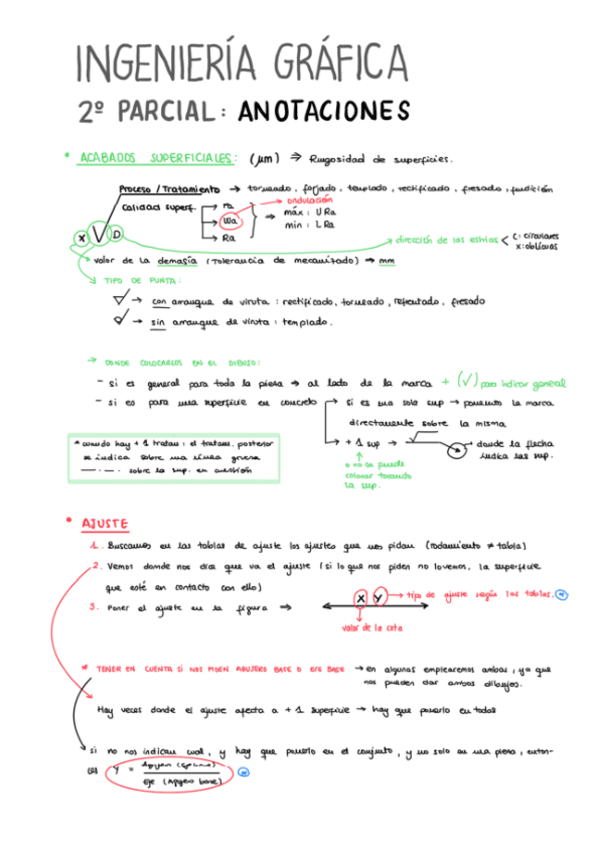 INGENIERÍA GRÁFICA
2º PARCIAL: ANOTACIONES
* ACABADOS SUPERFICIALES: (µm) → Rugosidad de superficies.
Proceso / Tratamiento → torneado, forjado, templado, rectificado, fresado, fundición
Calidad superf. → ra
→ Wa → ondulación
→ Ra
máx: U Ra
min: L Ra
X √ D
→ dirección de las estrías < C: circulares
X: oblicuas
valor de la demasía (tolerancia de mecanizado) → mm
TIPO DE PUNTA:
→ con arranque de viruta: rectificado, torneado, refrentado, fresado
→ sin arranque de viruta: templado.
→ DONDE COLOCARLOS EN EL DIBUJO:
- si es general para toda la pieza → al lado de la marca + (√) para indicar general
- si es para una superficie en concreto → si es una sola sup → ponemos la marca
directamente sobre la misma
→ + 1 sup → donde la flecha
indica las sup.
↑
o no se puede
colocar tocando
la sup.
* cuando hay + 1 tratam: el tratam. posterior
se indica sobre una línea gruesa
—·—·— sobre la sup. en cuestión
* AJUSTE
1. Buscamos en las tablas de ajuste los ajustes que nos pidan (rodamiento ≠ tabla)
2. Vemos donde nos dice que va el ajuste (si lo que nos piden no lo vemos, la superficie
que esté en contacto con ello)
3. Poner el ajuste en la figura ⇒
X Y → tipo de ajuste según las tablas.
valor de la cota
* TENER EN CUENTA SI NOS PIDEN AGUJERO BASE O EJE BASE → en algunas emplearemos ambas, ya que
nos pueden dar ambos dibujos.
Hay veces donde el ajuste afecta a + 1 superficie → hay que ponerlo en todas
si no nos indican cual, y hay que ponerlo en el conjunto, y no solo en una pieza, enton-
ces Y =
Eje (Agujero base)